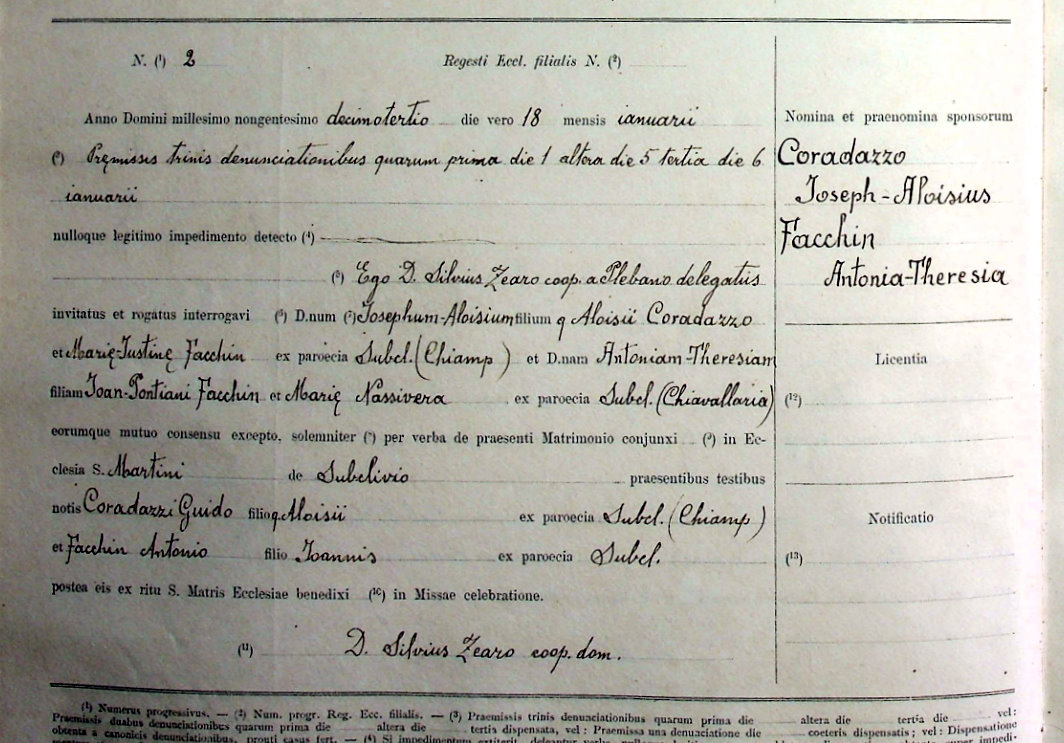 N. (¹) 2 Regesti Eccl. filialis N. (²)
Anno Domini millesimo nongentesimo decimotertio die vero 18 mensis ianuarii
(³) Pręmissis trinis denunciationibus quarum prima die 1 altera die 5 tertia die 6
ianuarii
nulloque legitimo impedimento detecto (⁴)
(⁵) Ego D. Silvius Zearo coop. a Plebano delegatus
invitatus et rogatus interrogavi (⁶) D.num (⁷) Josephum-Aloisium filium q Aloisii Coradazzo
et Marię-Justinę Facchin ex paroecia Subcl. (Chiamp) et D.nam Antoniam-Theresiam
filiam Joan-Pontiani Facchin et Marię Nassivera ex paroecia Subcl. (Chiavallaria)
eorumque mutuo consensu excepto, solemniter (⁸) per verba de praesenti Matrimonio conjunxi (⁹) in Ec-
clesia S. Martini de Subclivio praesentibus testibus
notis Coradazzi Guido filio q. Aloisii ex paroecia Subcl. (Chiamp)
et Facchin Antonio filio Joannis ex paroecia Subcl.
postea eis ex ritu S. Matris Ecclesiae benedixi (¹⁰) in Missae celebratione.
(¹¹) D. Silvius Zearo coop. dom.
Nomina et praenomina sponsorum
Coradazzo
Joseph-Aloisius
Facchin
Antonia-Theresia
Licentia
(¹²)
Notificatio
(¹³)
(¹) Numerus progressivus. — (²) Num. progr. Reg. Ecc. filialis. — (³) Praemissis trinis denunciationibus quarum prima die altera die tertia die vel:
Praemissis duabus denunciationibus quarum prima die altera die tertia dispensata, vel: Praemissa una denunciatione die coeteris dispensatis; vel: Dispensatione
obtenta a canonicis denunciationibus, prouti casus fert. — (⁴) Si impedimentum